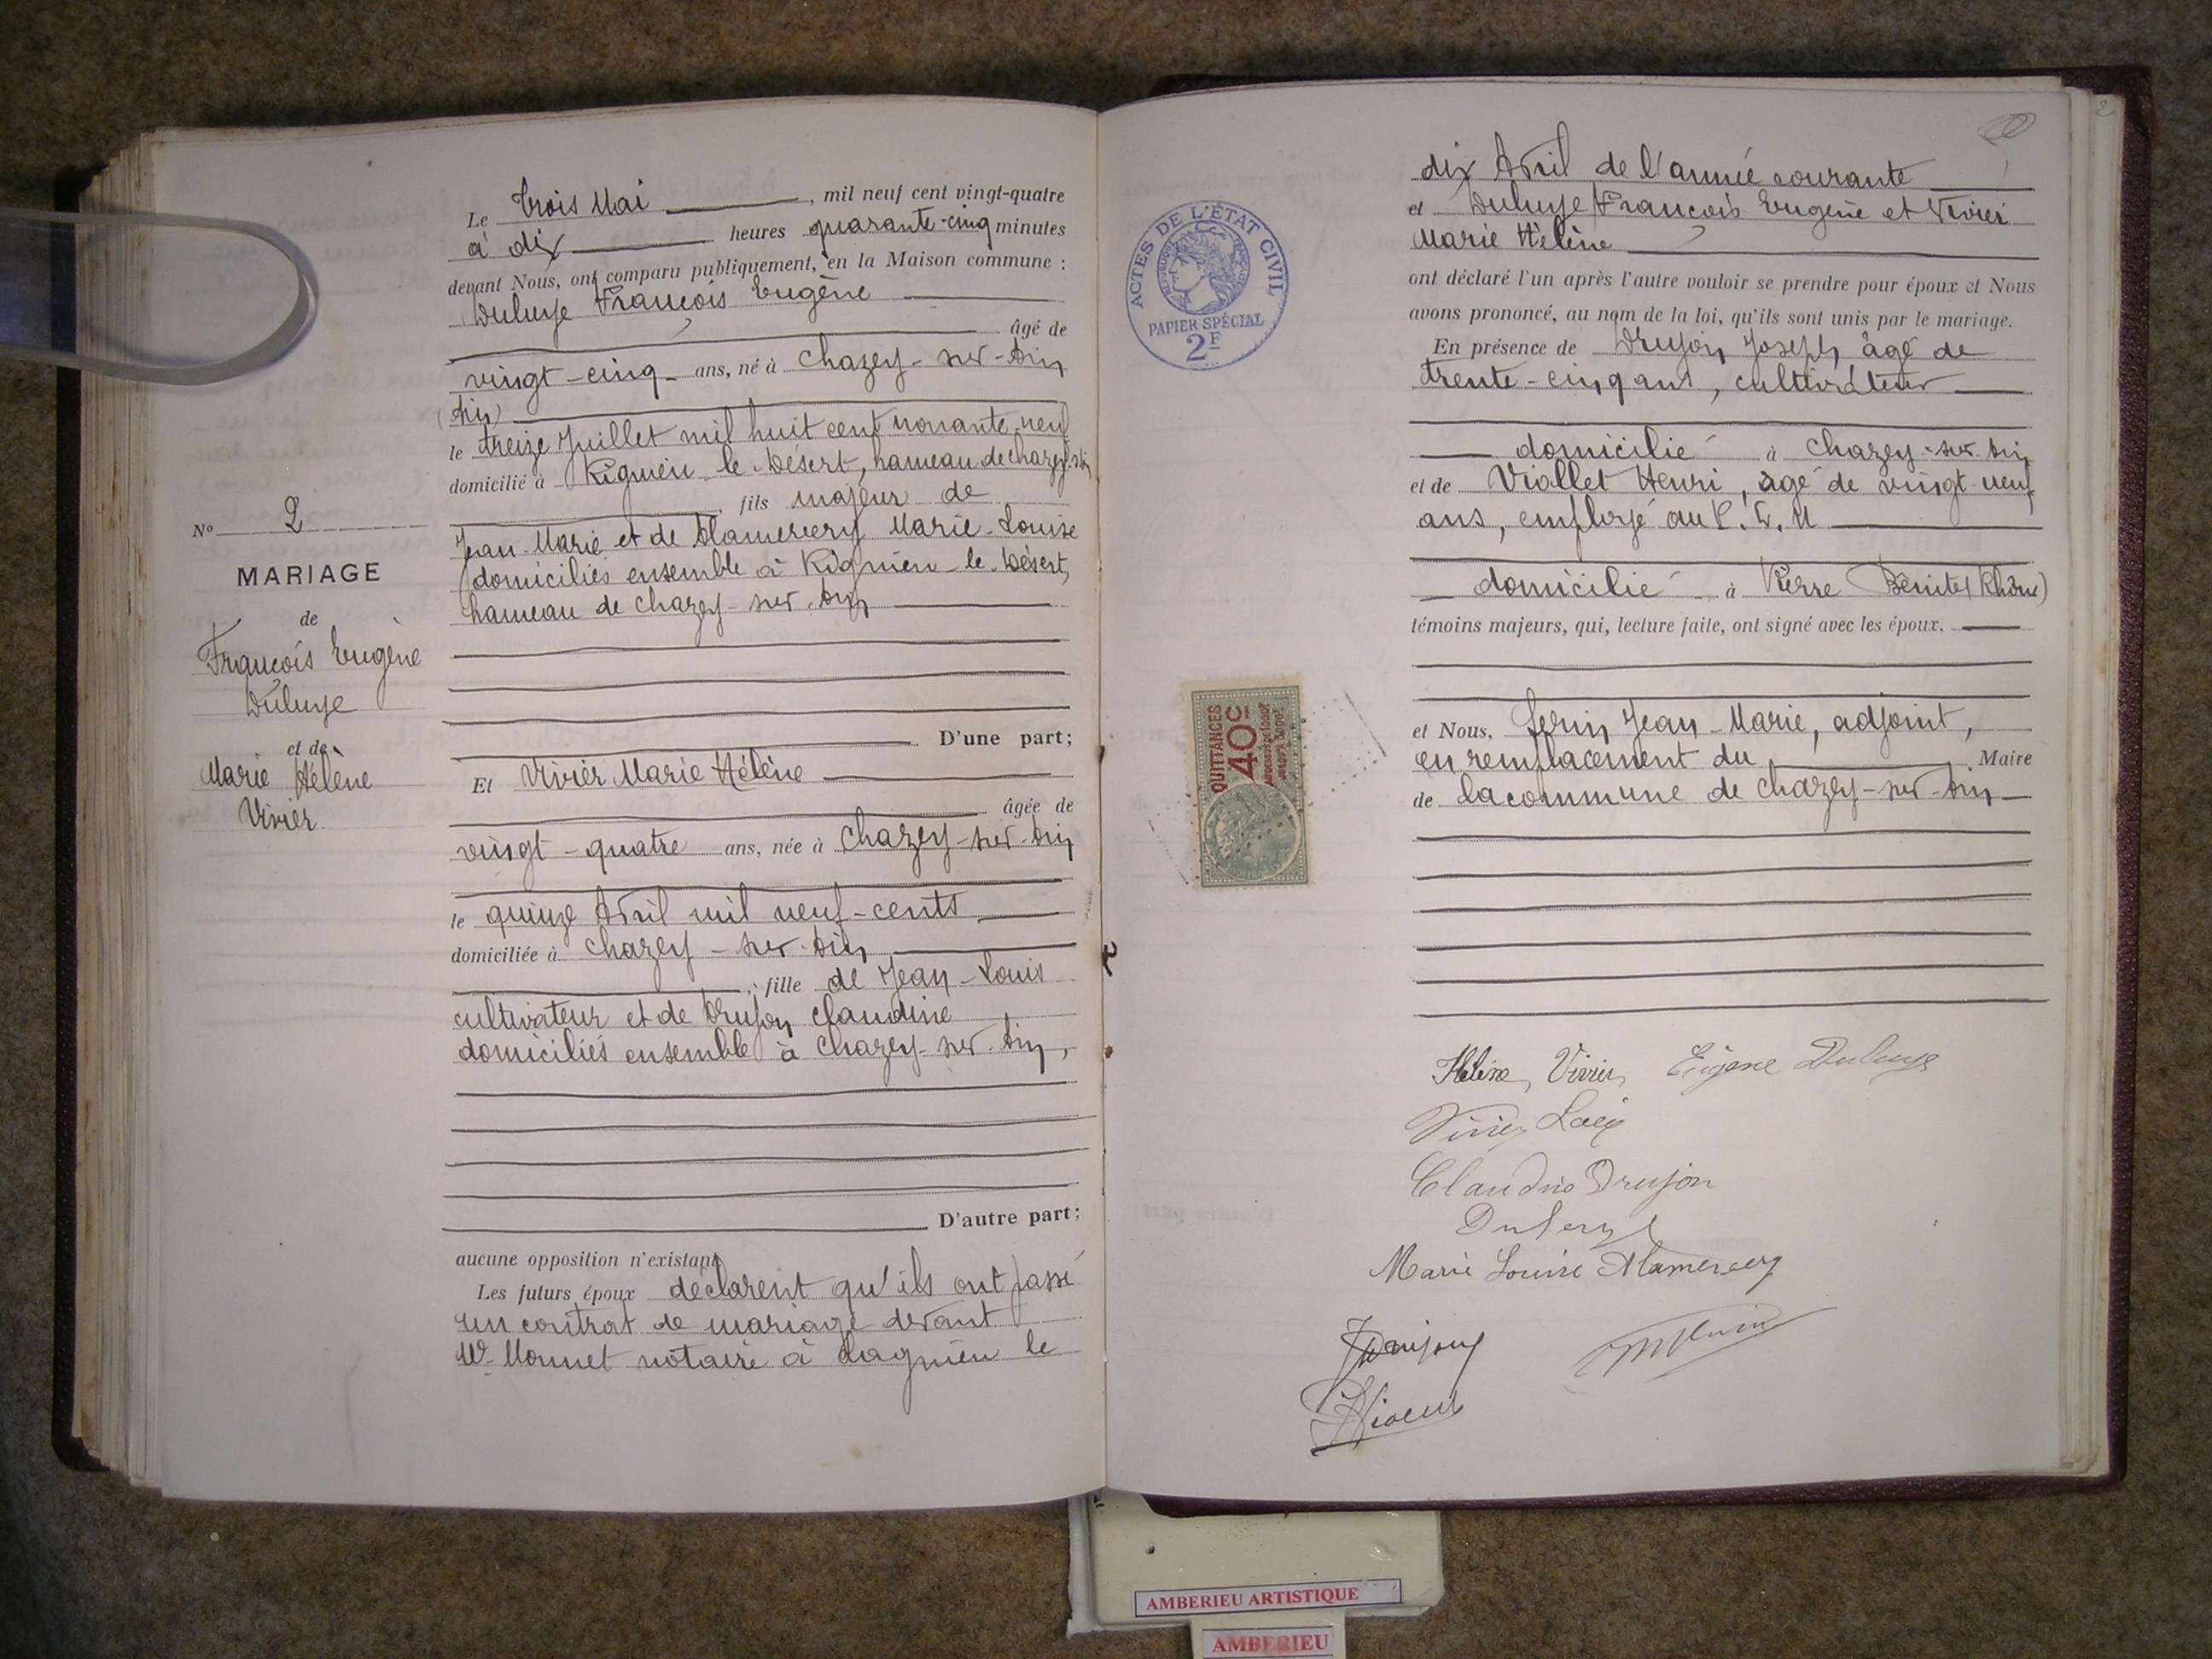 Le trois Mai, mil neuf cent vingt-quatre
à dix heures quarante-cinq minutes
devant Nous, ont comparu publiquement, en la Maison commune :
Duluye François Eugène
âgé de
vingt-cinq ans, né à Chazey-sur-Ain
(Ain)
le treize Juillet mil huit cent nonante neuf
domicilié à Rignieu le Désert, hameau de chazey s/Ain
, fils majeur de
Jean Marie et de Alamercery Marie-Louise
domiciliés ensemble à Rignieu-le-Désert,
hameau de chazey-sur-Ain
D'une part;
Et Vivier Marie Hélène
âgée de
vingt-quatre ans, née à Chazey-sur-Ain
le quinze Avril mil neuf-cents
domiciliée à chazey-sur-Ain
; fille de Jean-Louis
cultivateur et de Drujon Claudine
domiciliés ensemble à Chazey-sur-Ain,
D'autre part;
aucune opposition n'existant
Les futurs époux déclarent qu'ils ont passé
un contrat de mariage devant
Me Monnet notaire à Lagnieu le
No 2
MARIAGE
de
François Eugène
Duluye
et de
Marie Hélène
Vivier
2
dix Avril de l'année courante
et Duluye François Eugène et Vivier
Marie Hélène
ont déclaré l'un après l'autre vouloir se prendre pour époux et Nous
avons prononcé, au nom de la loi, qu'ils sont unis par le mariage.
En présence de Drujon Joseph, âgé de
trente-cinq ans, cultivateur
domicilié à Chazey-sur-Ain
et de Viallet Henri, âgé de vingt-neuf
ans, employé au P.L.M
domicilié à Pierre Bénite (Rhône)
témoins majeurs, qui, lecture faite, ont signé avec les époux.
et Nous, Jean-Marie, adjoint,
en remplacement du Maire
de la commune de Chazey-sur-Ain
ACTES DE L'ÉTAT CIVIL
PAPIER SPÉCIAL
2F
QUITTANCES
40c
Hélène Vivier Eugene Duluye
Vivier
Claudine Drujon
Marie Louise Alamercery
AMBERIEU ARTISTIQUE
AMBERIEU